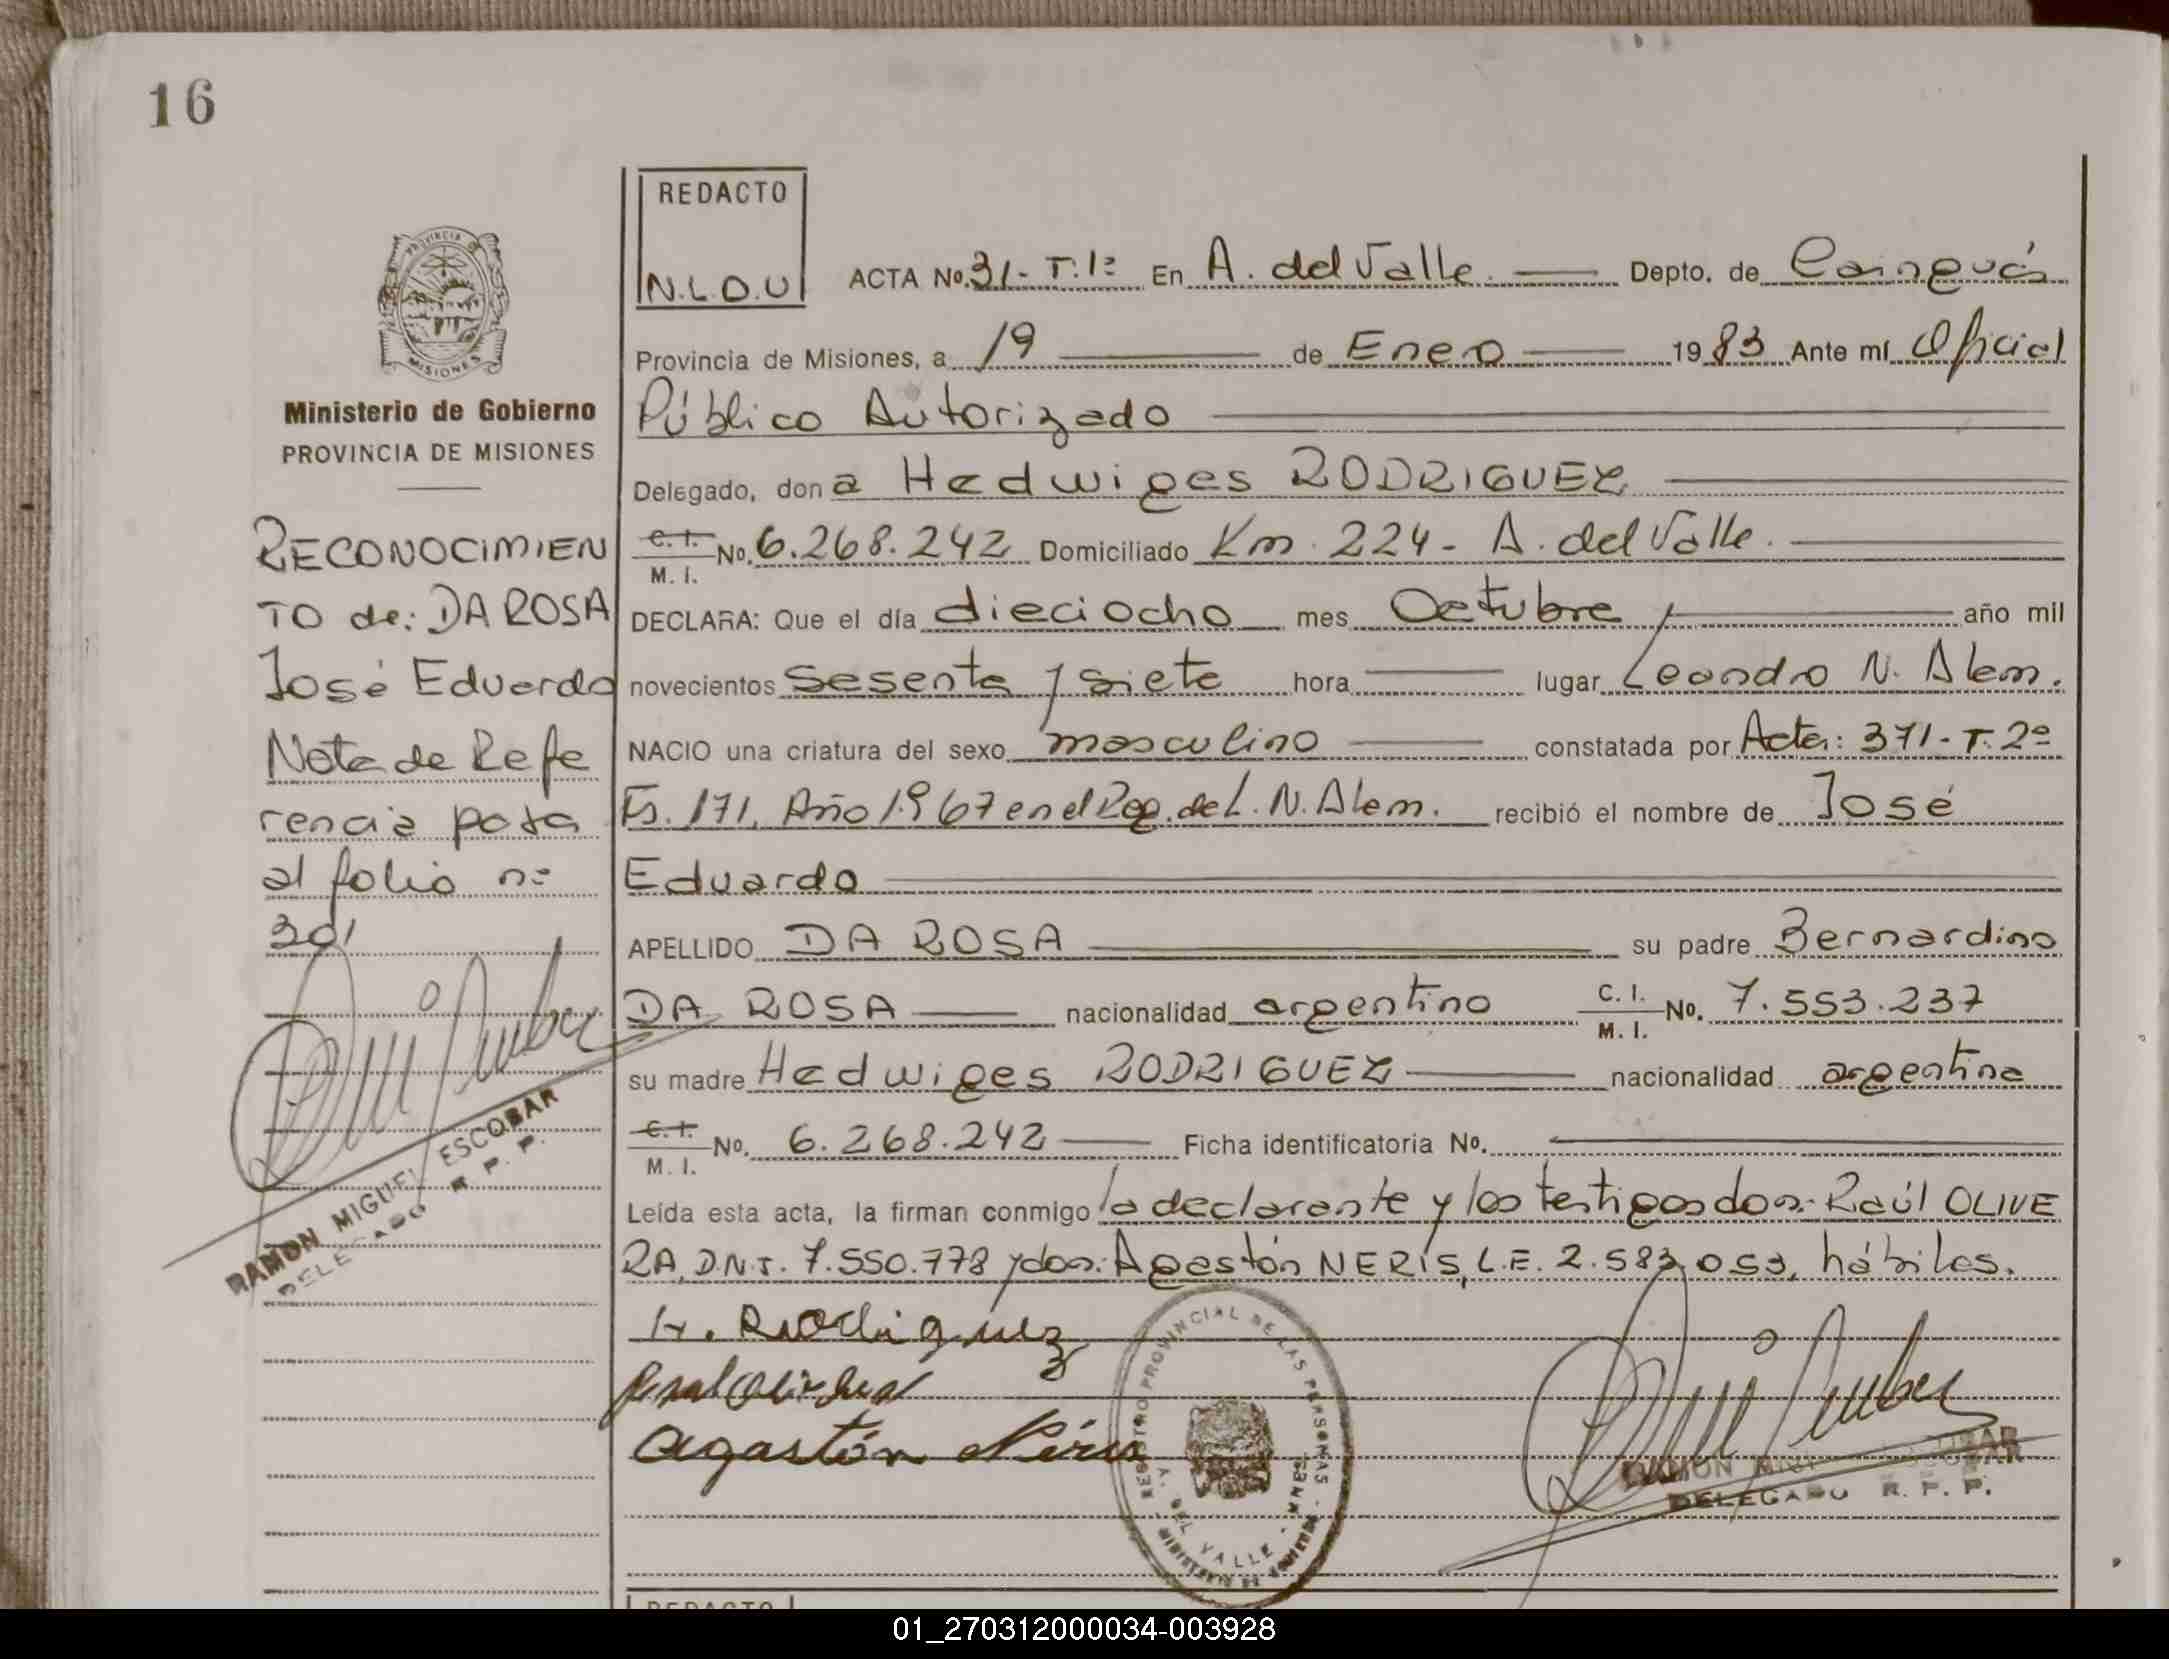 16
REDACTO
N.L.O.U
PROVINCIA DE
MISIONES
Ministerio de Gobierno
PROVINCIA DE MISIONES
RECONOCIMIEN
TO de: DA ROSA
José Eduardo
Nota de Refe
rencia pasa
al folio nº
301
RAMON MIGUEL ESCOBAR
DELEGADO R. P. P.
ACTA No. 31- T.1º En A. del Valle. Depto. de Cainguás
Provincia de Misiones, a 19 de Enero 1983 Ante mí Oficial
Público Autorizado
Delegado, don a Hedwiges RODRIGUEZ
C. I. M. I. No. 6.268.242 Domiciliado Km. 224- A. del Valle.
DECLARA: Que el día dieciocho mes Octubre año mil
novecientos sesenta y siete hora lugar Leandro N. Alem.
NACIO una criatura del sexo masculino constatada por Acta: 371-T.2º
Fs. 171, Año 1.967 en el Reg. de L. N. Alem. recibió el nombre de José
Eduardo
APELLIDO DA ROSA su padre Bernardino
DA ROSA nacionalidad argentino C. I. M. I. No. 7.553.237
su madre Hedwiges RODRIGUEZ nacionalidad argentina
C. I. M. I. No. 6.268.242 Ficha identificatoria No.
Leída esta acta, la firman conmigo la declarante y los testigos don: Raúl OLIVE
RA, D.N.I. 7.550.778 y don: Agastón NERIS, L.E. 2.583.053, hábiles.
H. Rodriguez
Raul Olivera
Agastón Néris
REGISTRO PROVINCIAL DE LAS PERSONAS
A. DEL VALLE - MNES.
MINISTERIO DE GOBIERNO
RAMON MIGUEL ESCOBAR
DELEGADO R. P. P.
REDACTO
01_270312000034-003928